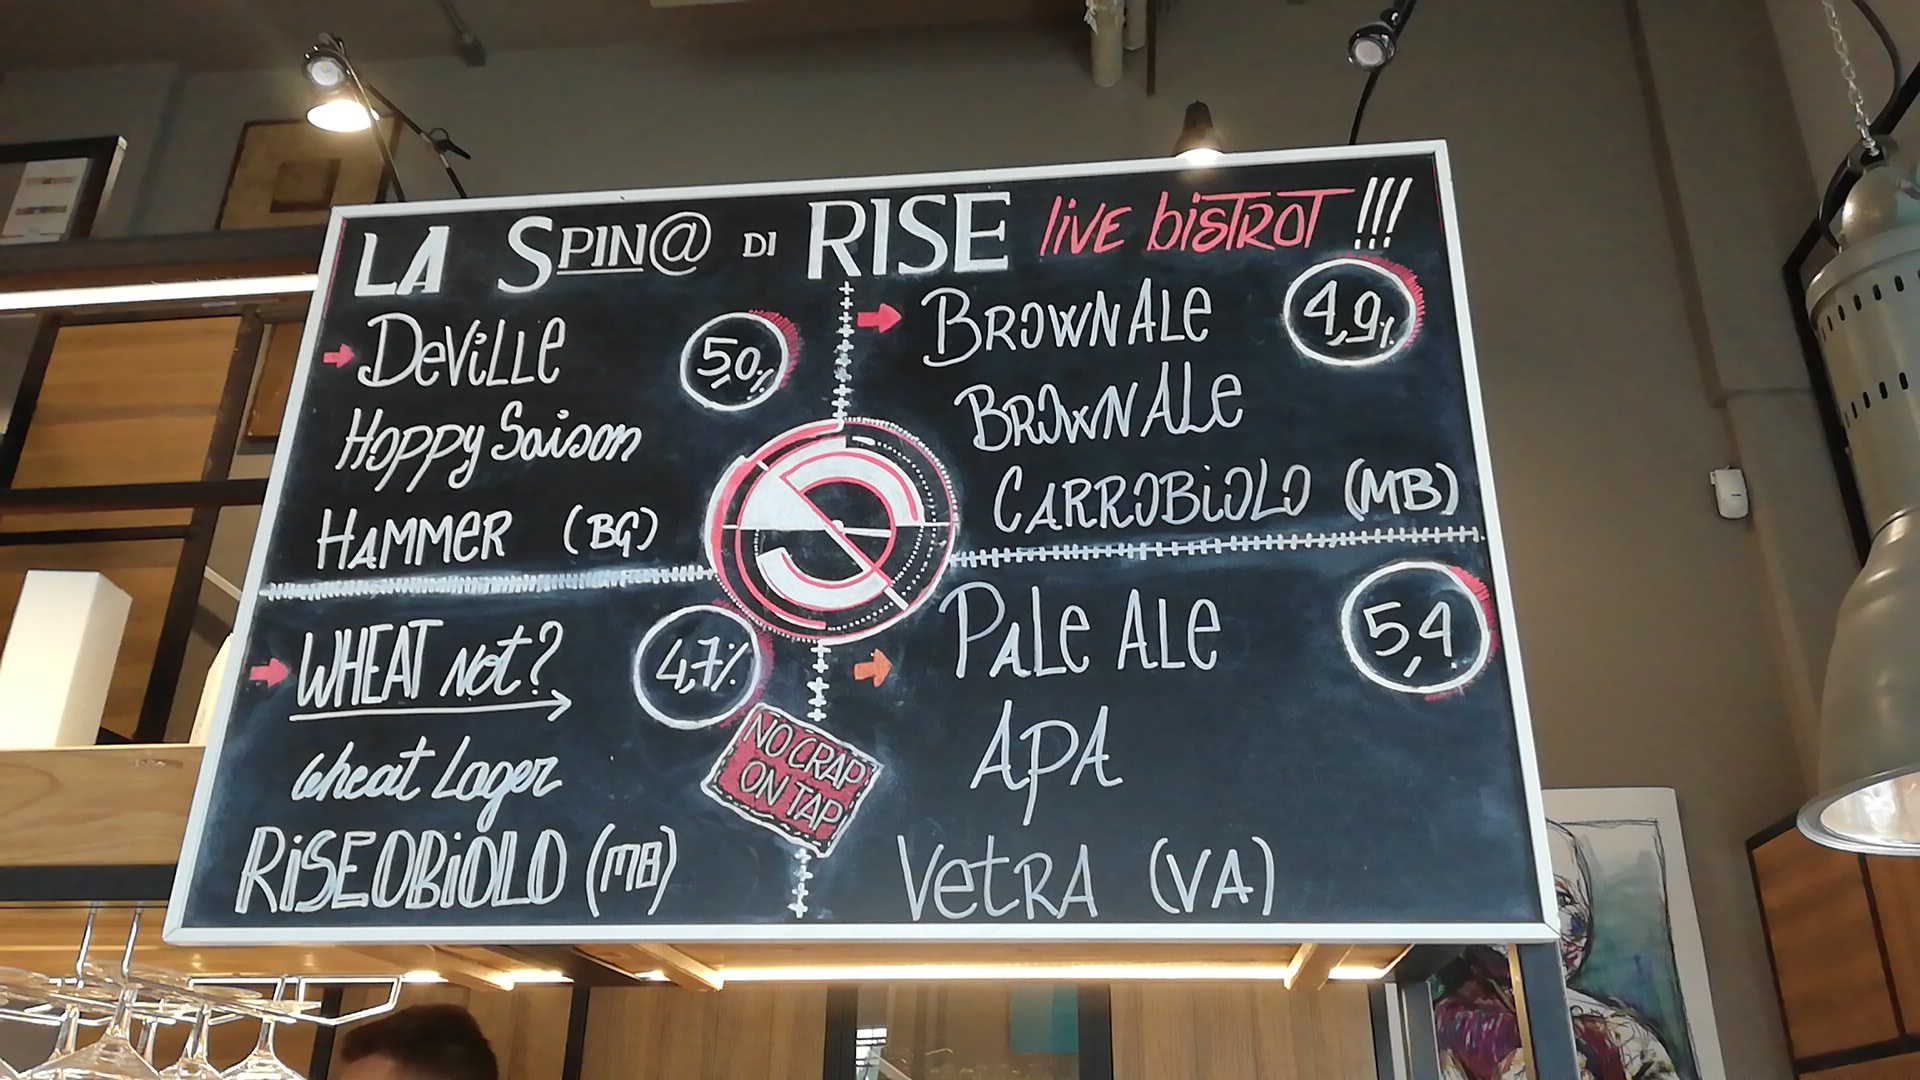 LA SPIN@ DI RISE liVE bisTROT !!!
DeViLLe
5,0%
Hoppy Saison
HAMMeR (BG)
BROWN ALe
4,9%
BROWN ALe
CARROBiOLO (MB)
WHEAT Not?
4,7%
wheat Lager
RiSEOBiOLO (MB)
NO CRAP
ON TAP
PALe ALe
5,4
APA
VetRA (VA)